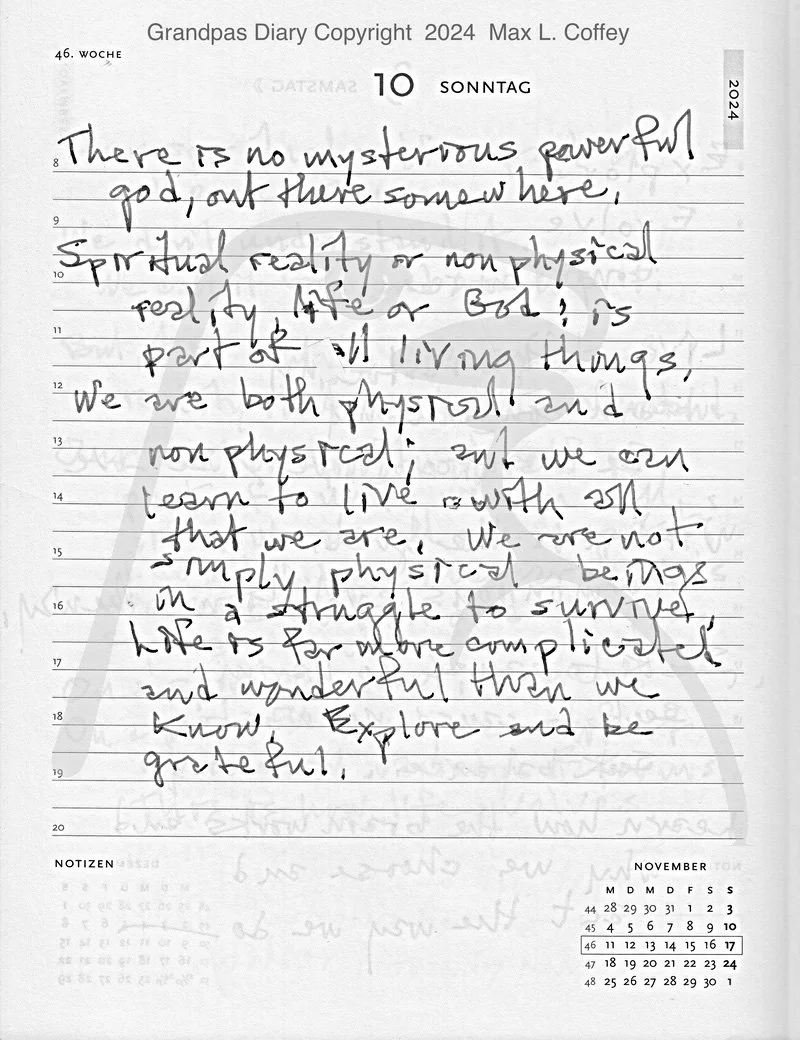 Grandpas Diary Copyright 2024 Max L. Coffey
46. WOCHE
10 SONNTAG
2024
8
There is no mysterious powerful
god, out there somewhere.
9
Spiritual reality or non physical
10
reality, life or God; is
11
part of all living things,
12
We are both physical and
13
non physical; ant we can
14
learn to live with all
that we are. We are not
15
simply physical beings
16
in a struggle to survive,
Life is far more complicated
17
and wonderful than we
18
know. Explore and be
grateful.
19
20
NOTIZEN
NOVEMBER
M D M D F S S
44 28 29 30 31 1 2 3
45 4 5 6 7 8 9 10
46 11 12 13 14 15 16 17
47 18 19 20 21 22 23 24
48 25 26 27 28 29 30 1